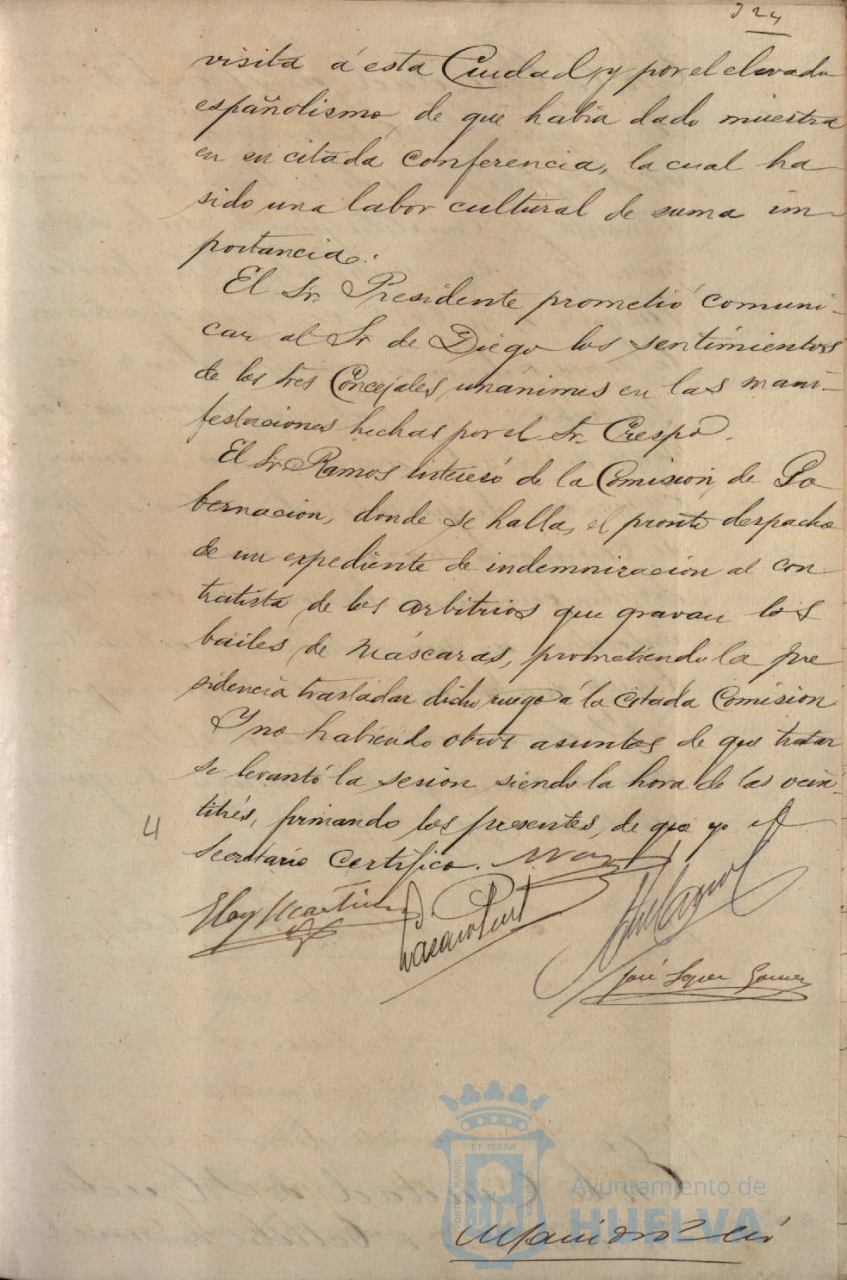 324
visita á esta Ciudad, y por el elevado
españolismo, de que había dado muestra
en su citada conferencia, la cual ha
sido una labor cultural de suma im-
portancia.
El Sr. Presidente prometió comuni-
car al Sr de Diego los sentimientos
de los tres Concejales, unánimes en las mani-
festaciones hechas por el Sr. Crespo.
El Sr. Ramos interesó de la Comisión, de Go
bernación, donde se halla, el pronto despacho
de un expediente de indemnización al con
tratista, de los arbitrios que gravan los
bailes de máscaras, prometiendo la pre
sidencia trasladar dicho ruego á la citada Comisión
Y no habiendo otros asuntos de que tratar
se levantó la sesión siendo la hora de las vein-
titrés, firmando los presentes, de que yo el
Secretario Certifico.
4
Eloy Martin
José Lopez Gomez
ET TERRAE
Ayuntamiento de
HUELVA